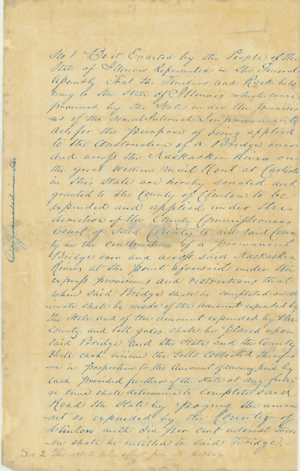 No 1 Be it Enacted by the People of the
State of Illinois Represented in the General
Assembly That the Timbers and Rock belo
ng to the State of Illinois which were
procured by the State under the provisio
ns of the General Internal Improvement
Acts for the purpose of being applied
to the Construction of a Bridge over
and across the Kaskaskia River on
the great Western Mail Rout at Carlisle
in this State are hereby donated and
granted to the County of Clinton to be
expended and applied under the
direction of the County Commissioners
Court of Said County to aid said Coun
ty in the construction of a permanent
Bridge over and across said Kaskaskia
River at the point aforesaid under the
express provisions and restrictions that
when said Bridge shall be completed
shall be made of the amount expended by
the State and of the amount expended by the
County and toll gates shall be placed upon
said Bridge and the State and the County
shall each receive the tolls collected
in proportion to the amount of money paid by
each Provided further if the State at any futu
re time shall determine to complete said
Road the State by paying the amou
nt so expended by the County of
Clinton with six per cent interest
shall be entitled to said Bridge
Sec 2 This act to take effect from its passage